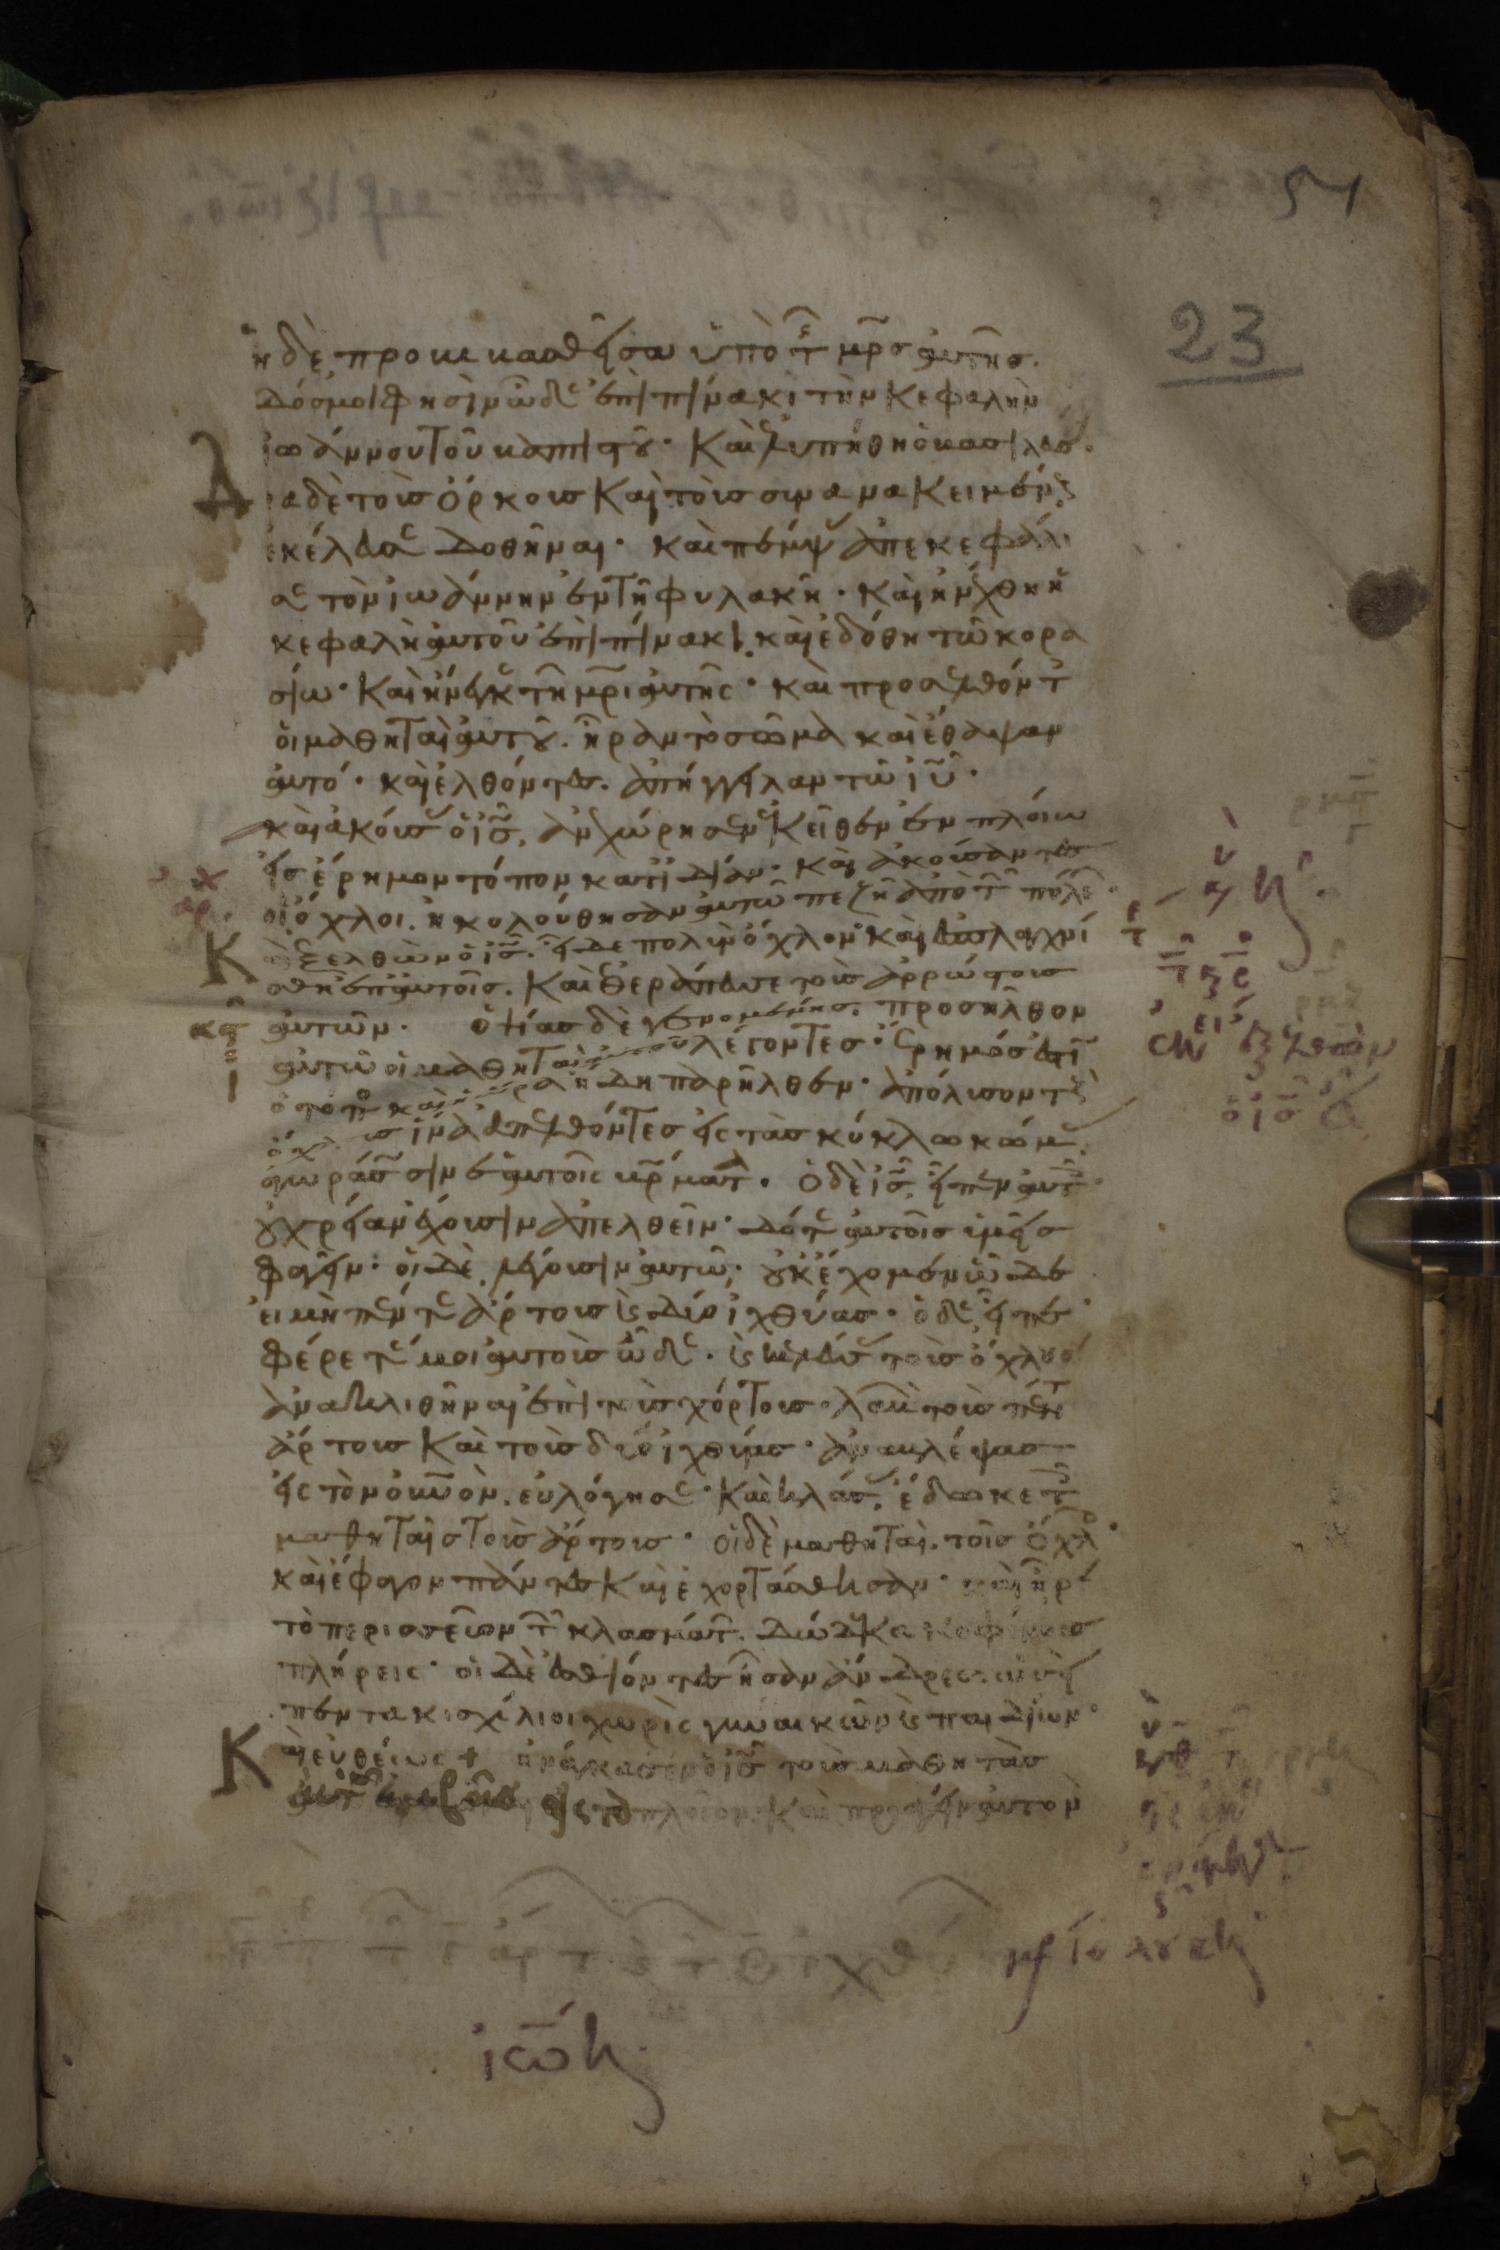 51
23
ἡ δὲ προβιβασθεῖσα ὑπὸ τ μρσ αὐτῆσ.
Δόσ μοι φησὶν ὧδε ἐπὶ πίνακι τὴν κεφαλὴν
ἰωάννου τοῦ βαπτιστοῦ· Καὶ ἐλυπήθη ὁ βασιλεὺσ.
Διὰ δὲ τοὺσ ὅρκουσ Καὶ τοὺσ συνανακειμένουσ
ἐκέλευσε δοθῆναι· καὶ πέμψασ ἀπεκεφάλι
σε τὸν ἰωάννην ἐν τῆ φυλακῆ· καὶ ἠνέχθη ἡ
κεφαλὴ αὐτοῦ ἐπὶ πίνακι. καὶ ἐδόθη τῶ κορα
σίω· Καὶ ἤνεγκε τῆ μρι αὐτῆς· καὶ προσελθόντ
οἱ μαθηταὶ αὐτοῦ. ἦραν τὸ σῶμα καὶ ἔθαψαν
αὐτό· καὶ ἐλθόντεσ. ἀπήγγειλαν τῶ ἰῦ·
καὶ ἀκούσασ ὁ ἰσ, ἀνεχώρησεν ἐκεῖθεν ἐν πλοίω
εἰσ ἔρημον τόπον κατ ἰδίαν· καὶ ἀκούσαντεσ
οἱ ὄχλοι. ἠκολούθησαν αὐτῶ πεζῆ ἀπὸ τ πόλε
Κὰι ἐξελθὼν ὁ ἰσ. εἶδε πολὺν ὄχλον καὶ ἐσπλαγχνί
σθη ἐπ αὐτοῖσ. Καὶ ἐθεράπευσε τοὺσ ἀρρώστουσ
αὐτῶν. ὀψίασ δὲ γενομένησ. προσῆλθον
αὐτῶ οἱ μαθηταὶ αὐτοῦ λέγοντεσ· ἔρημόσ ἐστι
ὁ τοπ καὶ ἡ ὥρα ἤδη παρῆλθεν· ἀπόλυσον τ
ὄχλουσ ἵνα ἀπελθόντεσ εἰς τὰσ κύκλω κώμασ
ἀγοράσ σιν ἑαυτοῖς βρματ. ὁ δὲ ἰσ, εἶπεν αὐτ
οὐ χρείαν ἔχουσιν ἀπελθεῖν· δότε αὐτοῖσ ὑμεῖσ
φαγεῖν· οἱ δὲ λέγουσιν αὐτῶ· οὐκ ἔχομεν ὧδε
εἰ μὴ πέντε ἄρτουσ καὶ δύο ἰχθύασ· ὁ δε εἶπεν
φέρετέ μοι αὐτοὺσ ὧδε. καὶ κελεύσασ τοὺσ ὄχλουσ
ἀνακλιθῆναι ἐπὶ τοὺσ χόρτουσ. λαβὼν τοὺσ πέντε
ἄρτουσ Καὶ τοὺσ δύο ἰχθύασ· ἀναβλέψασ
εἰς τὸν οὐνον. εὐλόγησε· Καὶ κλάσασ, ἔδωκε τ
μαθηταῖσ τοὺσ ἄρτουσ· οἱ δὲ μαθηταὶ. τοῖσ ὄχλ
καὶ ἔφαγον πάντεσ Καὶ ἐχορτάσθησαν· καὶ ἦραν
τὸ περισσεῦον τ κλασμάτ. δώδεκα κοφίνουσ
πλήρεις· οἱ δὲ ἐσθίοντεσ ἦσαν ἄνδρεσ ὡσεὶ
πεντακισχίλιοι χωρὶς γυναικῶν καὶ παιδίων·
Καὶ εὐθέως + ἠνάγκασεν ὁ ἰσ τοὺσ μαθητὰσ
αὐτοῦ ἐμβῆναι εἰς τὸ πλοῖον. Καὶ προάγειν αὐτὸν